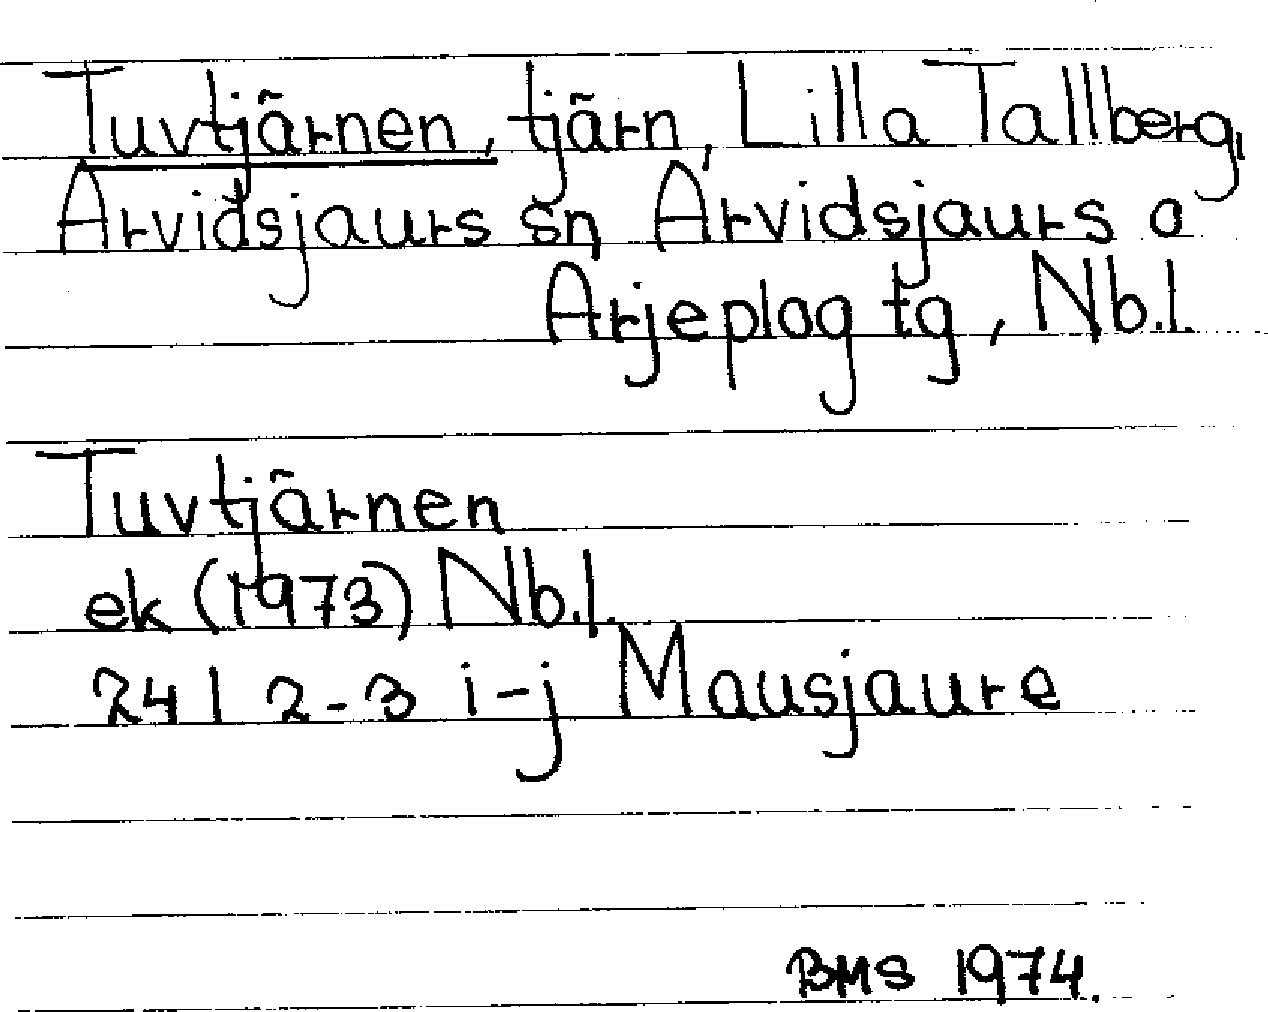 Tuvtjärnen, tjärn, Lilla Tallberg,
Arvidsjaurs sn Arvidsjaurs o
Arjeplog tg, Nb.l.
Tuvtjärnen
ek (1973) Nb.l.
24 I 2-3 i-j Mausjaure
BMS 1974.